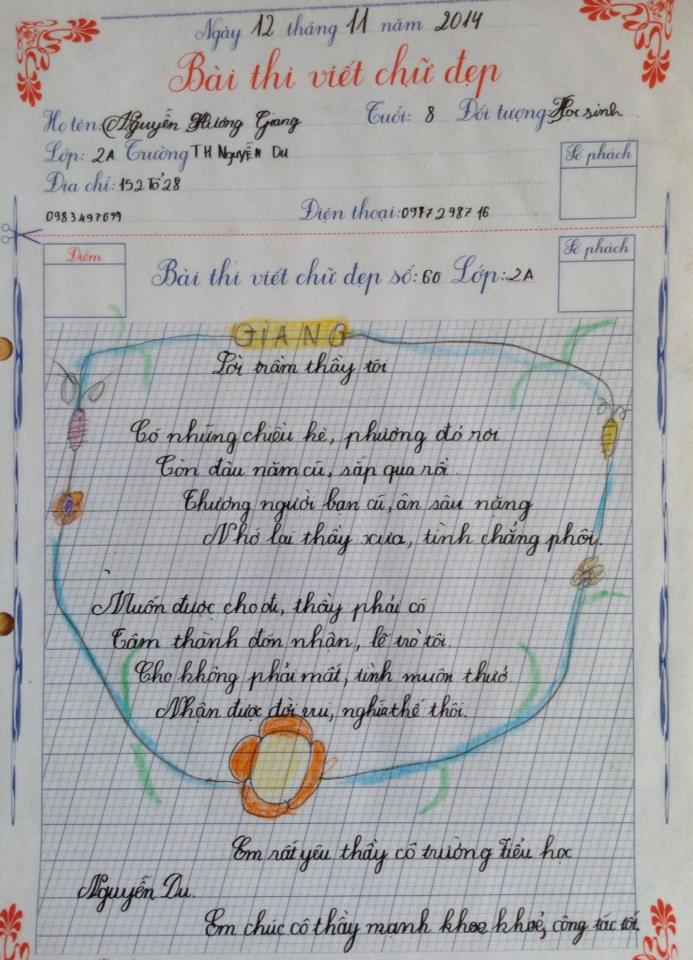 Ngày 12 tháng 11 năm 2014
Bài thi viết chữ đẹp
Họ tên: Nguyễn Hương Giang Tuổi: 8 Đối tượng: Học sinh
Lớp: 2A Trường TH Nguyễn Du
Số phách
Địa chỉ: 152 Tổ 28
0983497699 Điện thoại: 0977298716
Điểm
Số phách
Bài thi viết chữ đẹp số: 60 Lớp: 2A
GIANG
Lời trầm thầy tôi
Có những chiều hè, phượng đỏ rơi
Còn đâu năm cũ, sắp qua rồi.
Thương người bạn cũ, ân sâu nặng
Nhớ lại thầy xưa, tình chẳng phôi.
Muốn được cho đi, thầy phải có
Tâm thành đón nhận, lẽ trò tôi.
Cho không phải mất, tình muôn thuở
Nhận được đời vui, nghĩa thế thôi.
Em rất yêu thầy cô trường Tiểu học
Nguyễn Du.
Em chúc cô thầy mạnh khoe khoẻ, công tác tốt.